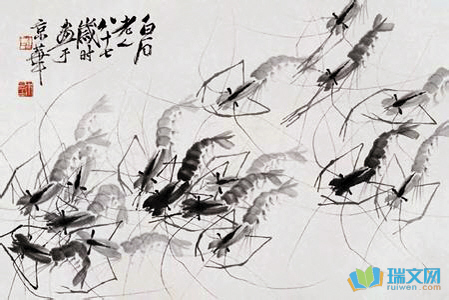 白石
老人
八十七
歲時
畫于
京華
瑞文网
ruiwen.com